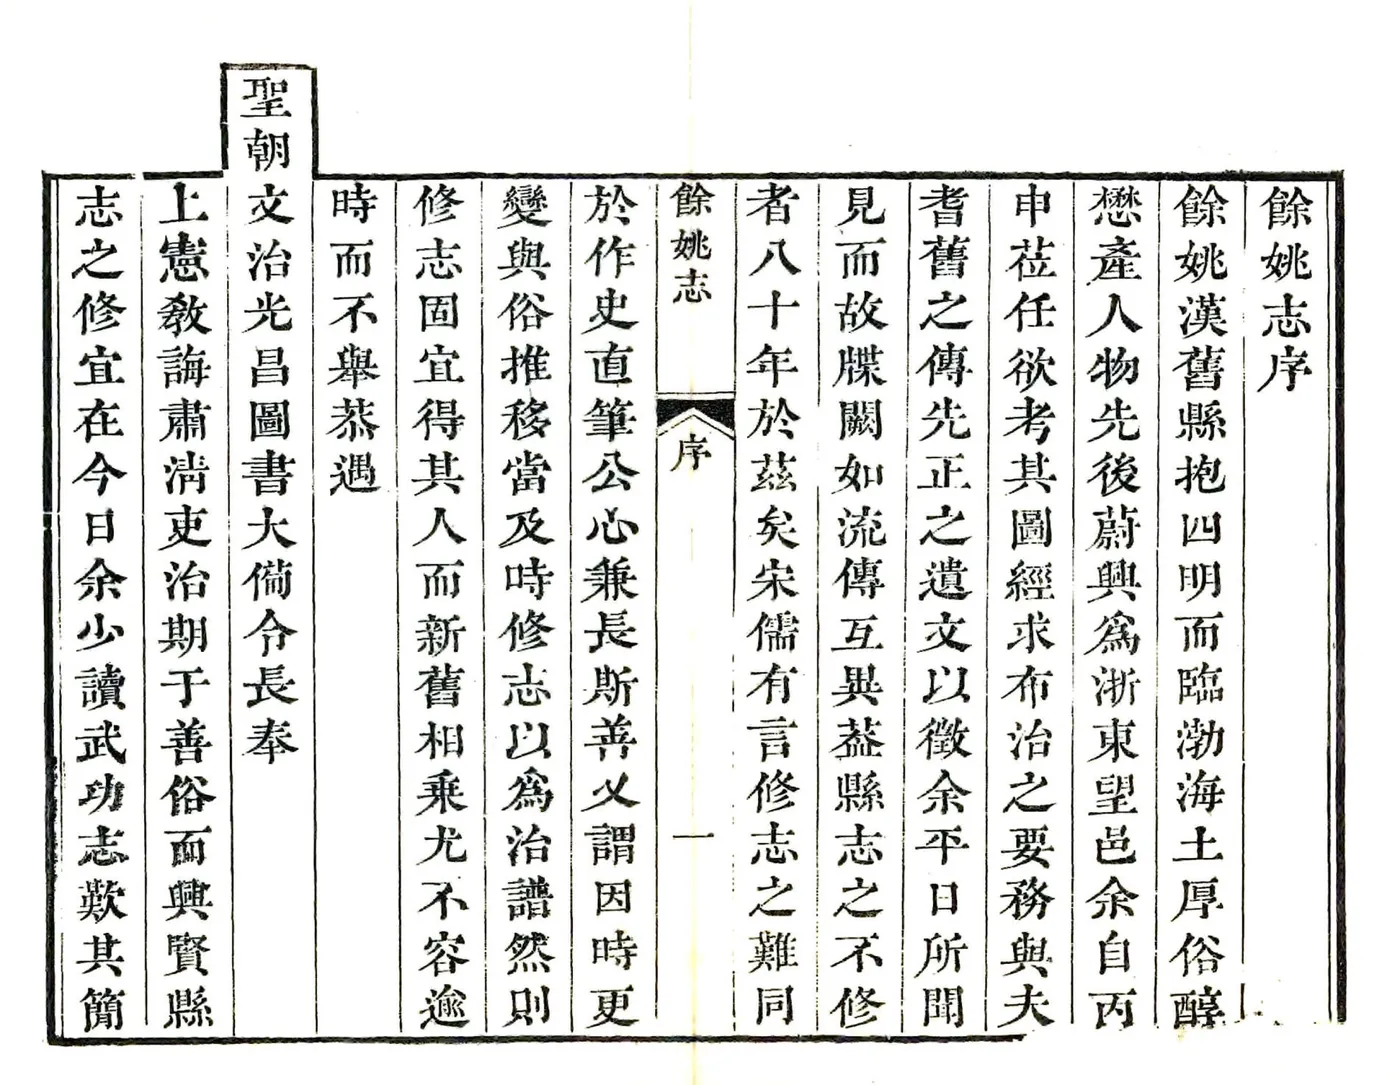 餘姚志序
餘姚漢舊縣抱四明而臨渤海土厚俗醇
懋產人物先後蔚興爲浙東望邑余自丙
申莅任欲考其圖經求布治之要務與夫
耆舊之傳先正之遺文以徵余平日所聞
見而故牒闕如流傳互異葢縣志之不修
者八十年於茲矣宋儒有言修志之難同
餘姚志
序
一
於作史直筆公心兼長斯善又謂因時更
變與俗推移當及時修志以爲治譜然則
修志固宜得其人而新舊相乗尤不容逾
時而不舉恭遇
聖朝文治光昌圖書大僃令長奉
上憲敎誨肅淸吏治期于善俗而興賢縣
志之修宜在今日余少讀武功志歎其簡